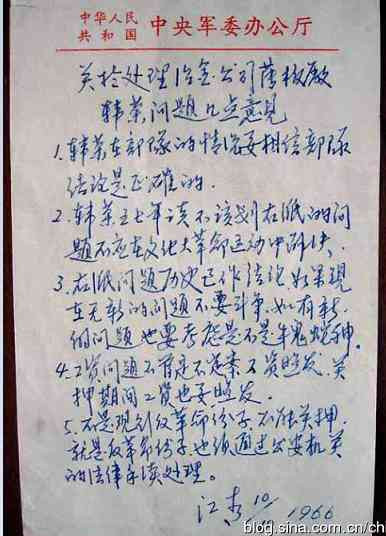 中华人民
共和国 中央军委办公厅
关於处理冶金公司
韩荣问题几点意见
1. 韩荣在部队的情况要相信部队
结论是正确的.
2. 韩荣五七年该不该划右派的问
题不应在文化大革命运动中解决、
3. 右派问题历史已作结论如果现
在无新的问题不要斗争.如有新
的问题也要考虑是不是牛鬼蛇神.
4. 工资问题不管是不是 工资照发.关
押期间工资也要照发.
5. 不是现行反革命份子.不能关押.
就是反革命份子也须通过公安机关
的法律手续处理。
江青 10/ 1966
blog.sina.com.cn/ch